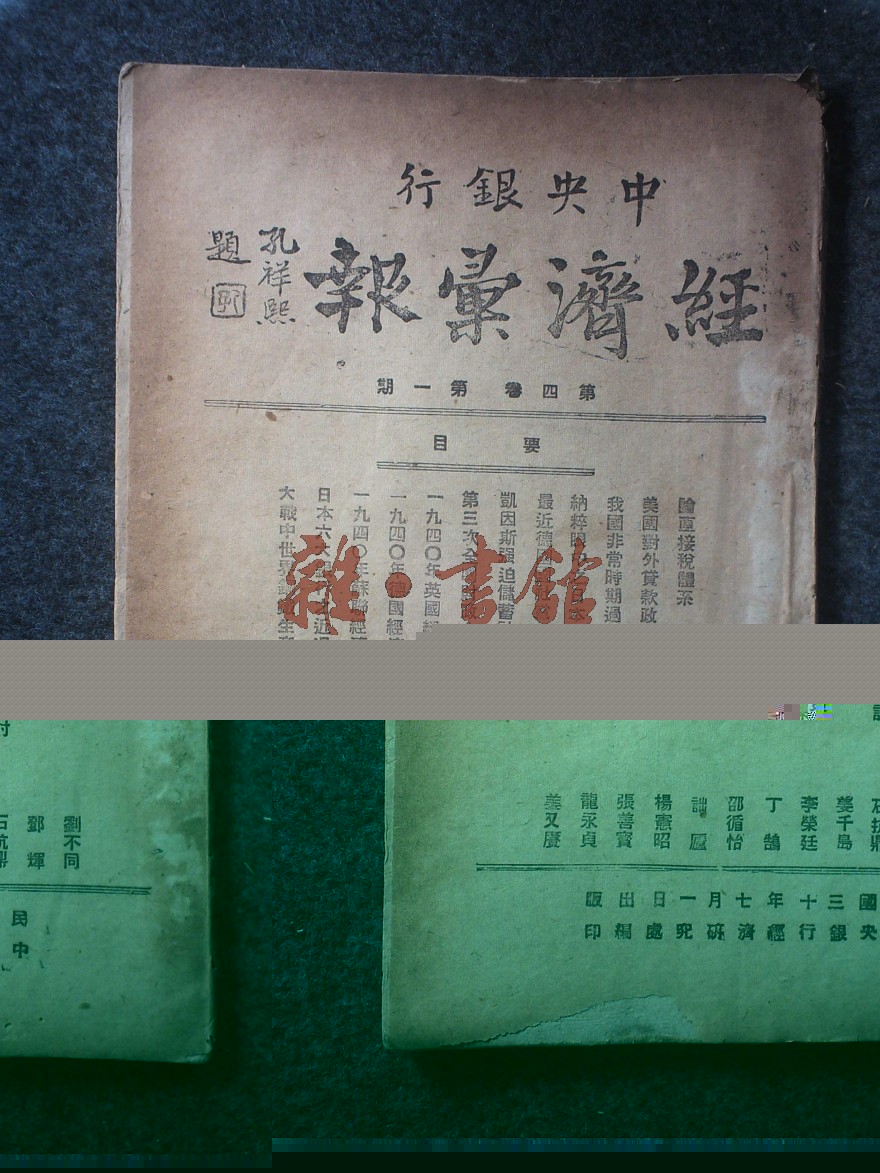 中央銀行
經濟彙報
孔祥熙
題
第四卷 第一期
要目
論直接稅體系
美國對外貸款政
我國非常時期過
納粹
最近德
凱因斯强迫儲蓄
第三次全
一九四〇年英國經
一九四〇年德國經濟
一九四〇年蘇聯經濟
日本六大
大戰中世界
雜·書館
姜千島
李榮廷
丁鵠
邵循怡
楊憲昭
張善寶
龍永貞
姜又慶
國三十年七月一日出版
央銀行經濟研究處編印
劉不同
鄧輝
民
中